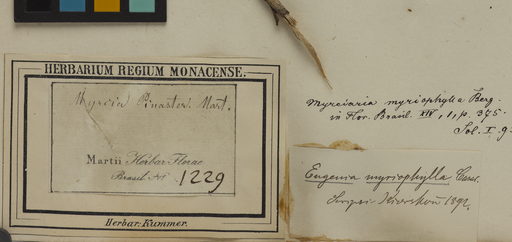 HERBARIUM REGIUM MONACENSE.
Myrcia Pinaster Mart.
Martii Herbar. Florae
Brasil. No 1229
Herbar. Kummer.
Myrciaria myriophylla Berg.
in Flor. Brasil. XIV, 1, p. 375.
Sol. I. 9
Eugenia myriophylla Casar.
1892.